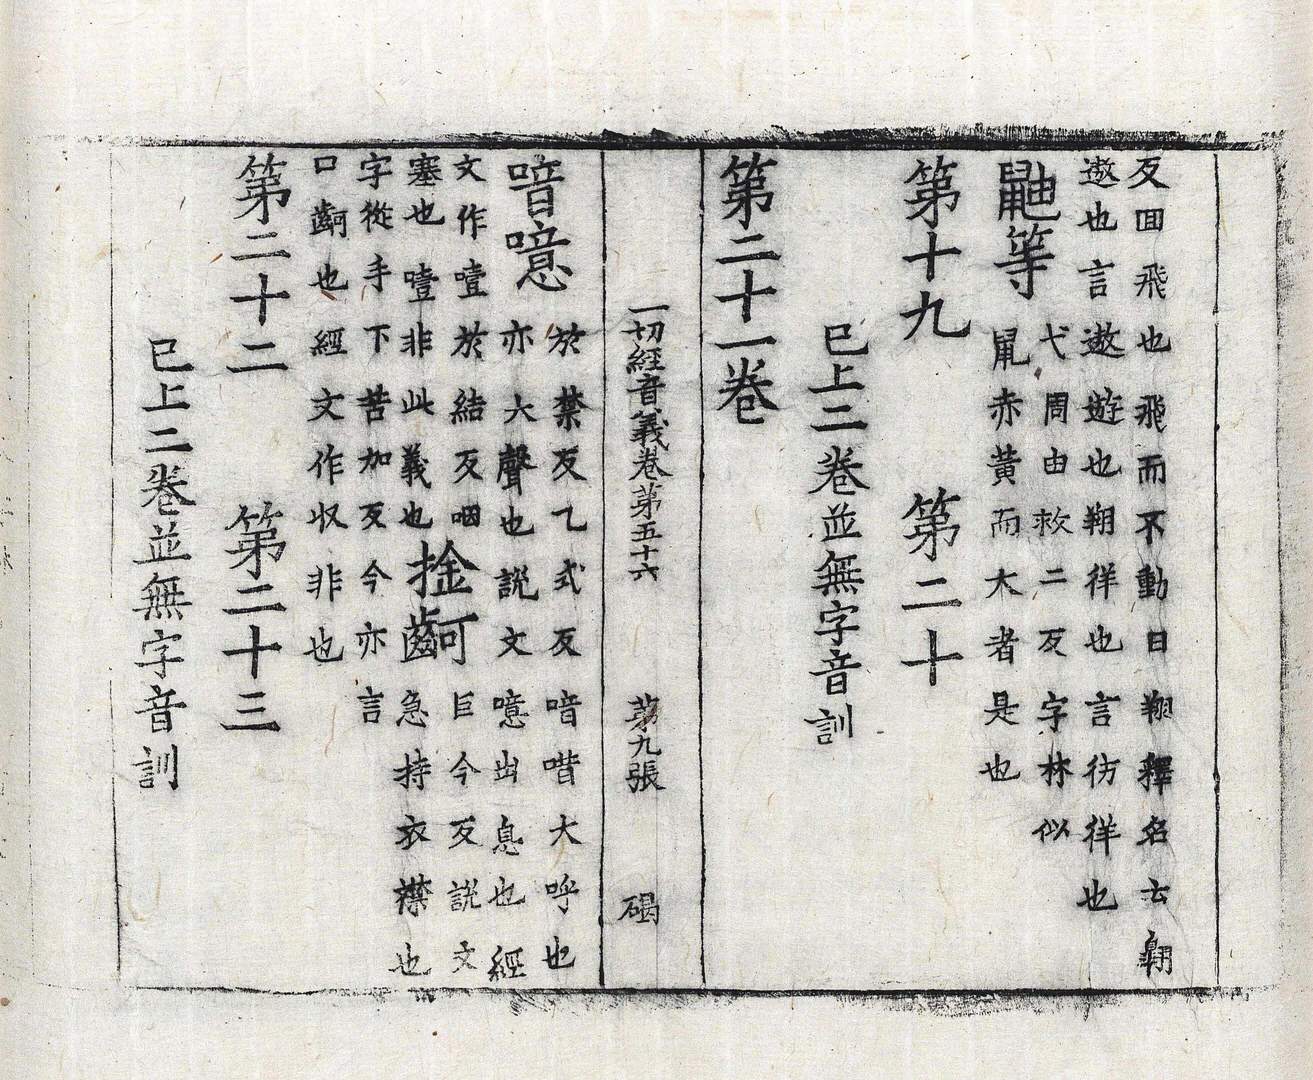 反囬飛也飛而不動曰翔釋名云翱
遨也言遨遊也翔徉也言彷徉也
鼬等
弋周由救二反字林似
鼠赤黃而大者是也
第十九　第二十
已上二卷並無字音訓
第二十一卷
一切經音義卷第五十六　第九張　碣
喑噫
於禁反乙式反喑唶大呼也
亦大聲也說文噫出息也經
文作噎於結反咽
塞也噎非此義也
捦𪘁
巨今反說文
急持衣襟也
字從手下苦加反今亦言
口𪘁也經文作収非也
第二十二　第二十三
已上二卷並無字音訓